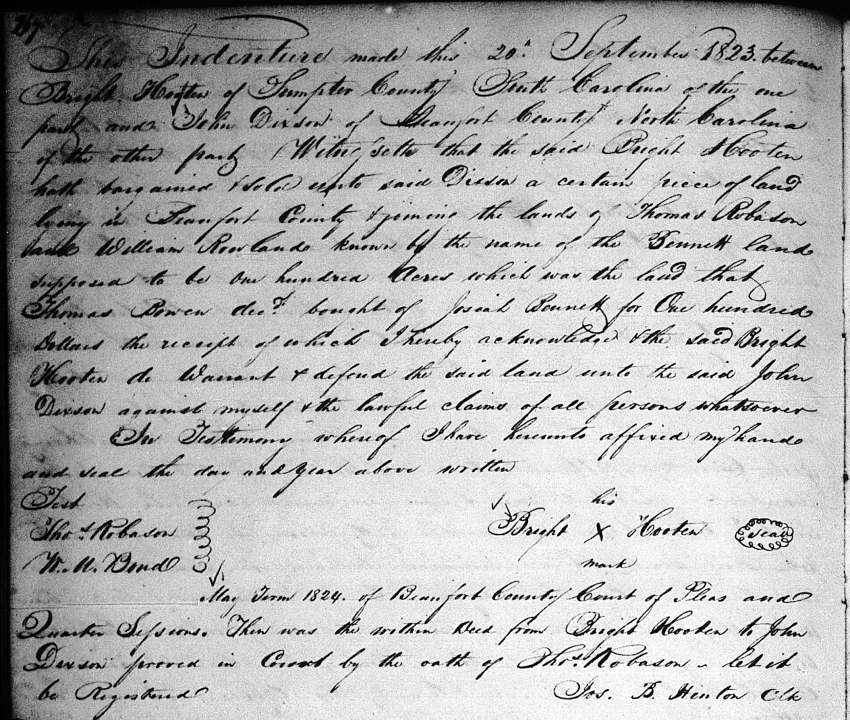 This Indenture made this 20th September 1823. between
Bright Hooten of Sumpter County South Carolina of the one
part and John Dixson of Beaufort County North Carolina
of the other party Witnesseth that the said Bright Hooten
hath bargained & sold unto said Dixson a certain piece of land
lying in Beaufort County & joining the lands of Thomas Robason
and William Rowlands known by the name of the Bennett land
supposed to be one hundred Acres which was the land that
Thomas Bowen decd. bought of Josiah Bennett for One hundred
Dollars the receipt of which I hereby acknowledge & the said Bright
Hooten do Warrant & defend the said land unto the said John
Dixson against myself & the lawful claims of all persons whatsoever
In Testimony whereof I have hereunto affixed my hand
and seal the day and year above written
Test
his
Thos. Robason
Bright X Hooten seal
W. M. Bond
mark
May Term 1824. of Beaufort County Court of Pleas and
Quarter Sessions. Then was the within Deed from Bright Hooten to John
Dixson proved in Court by the oath of Thos. Robason - let it
be Registered
Jos. B. Hinton Clk